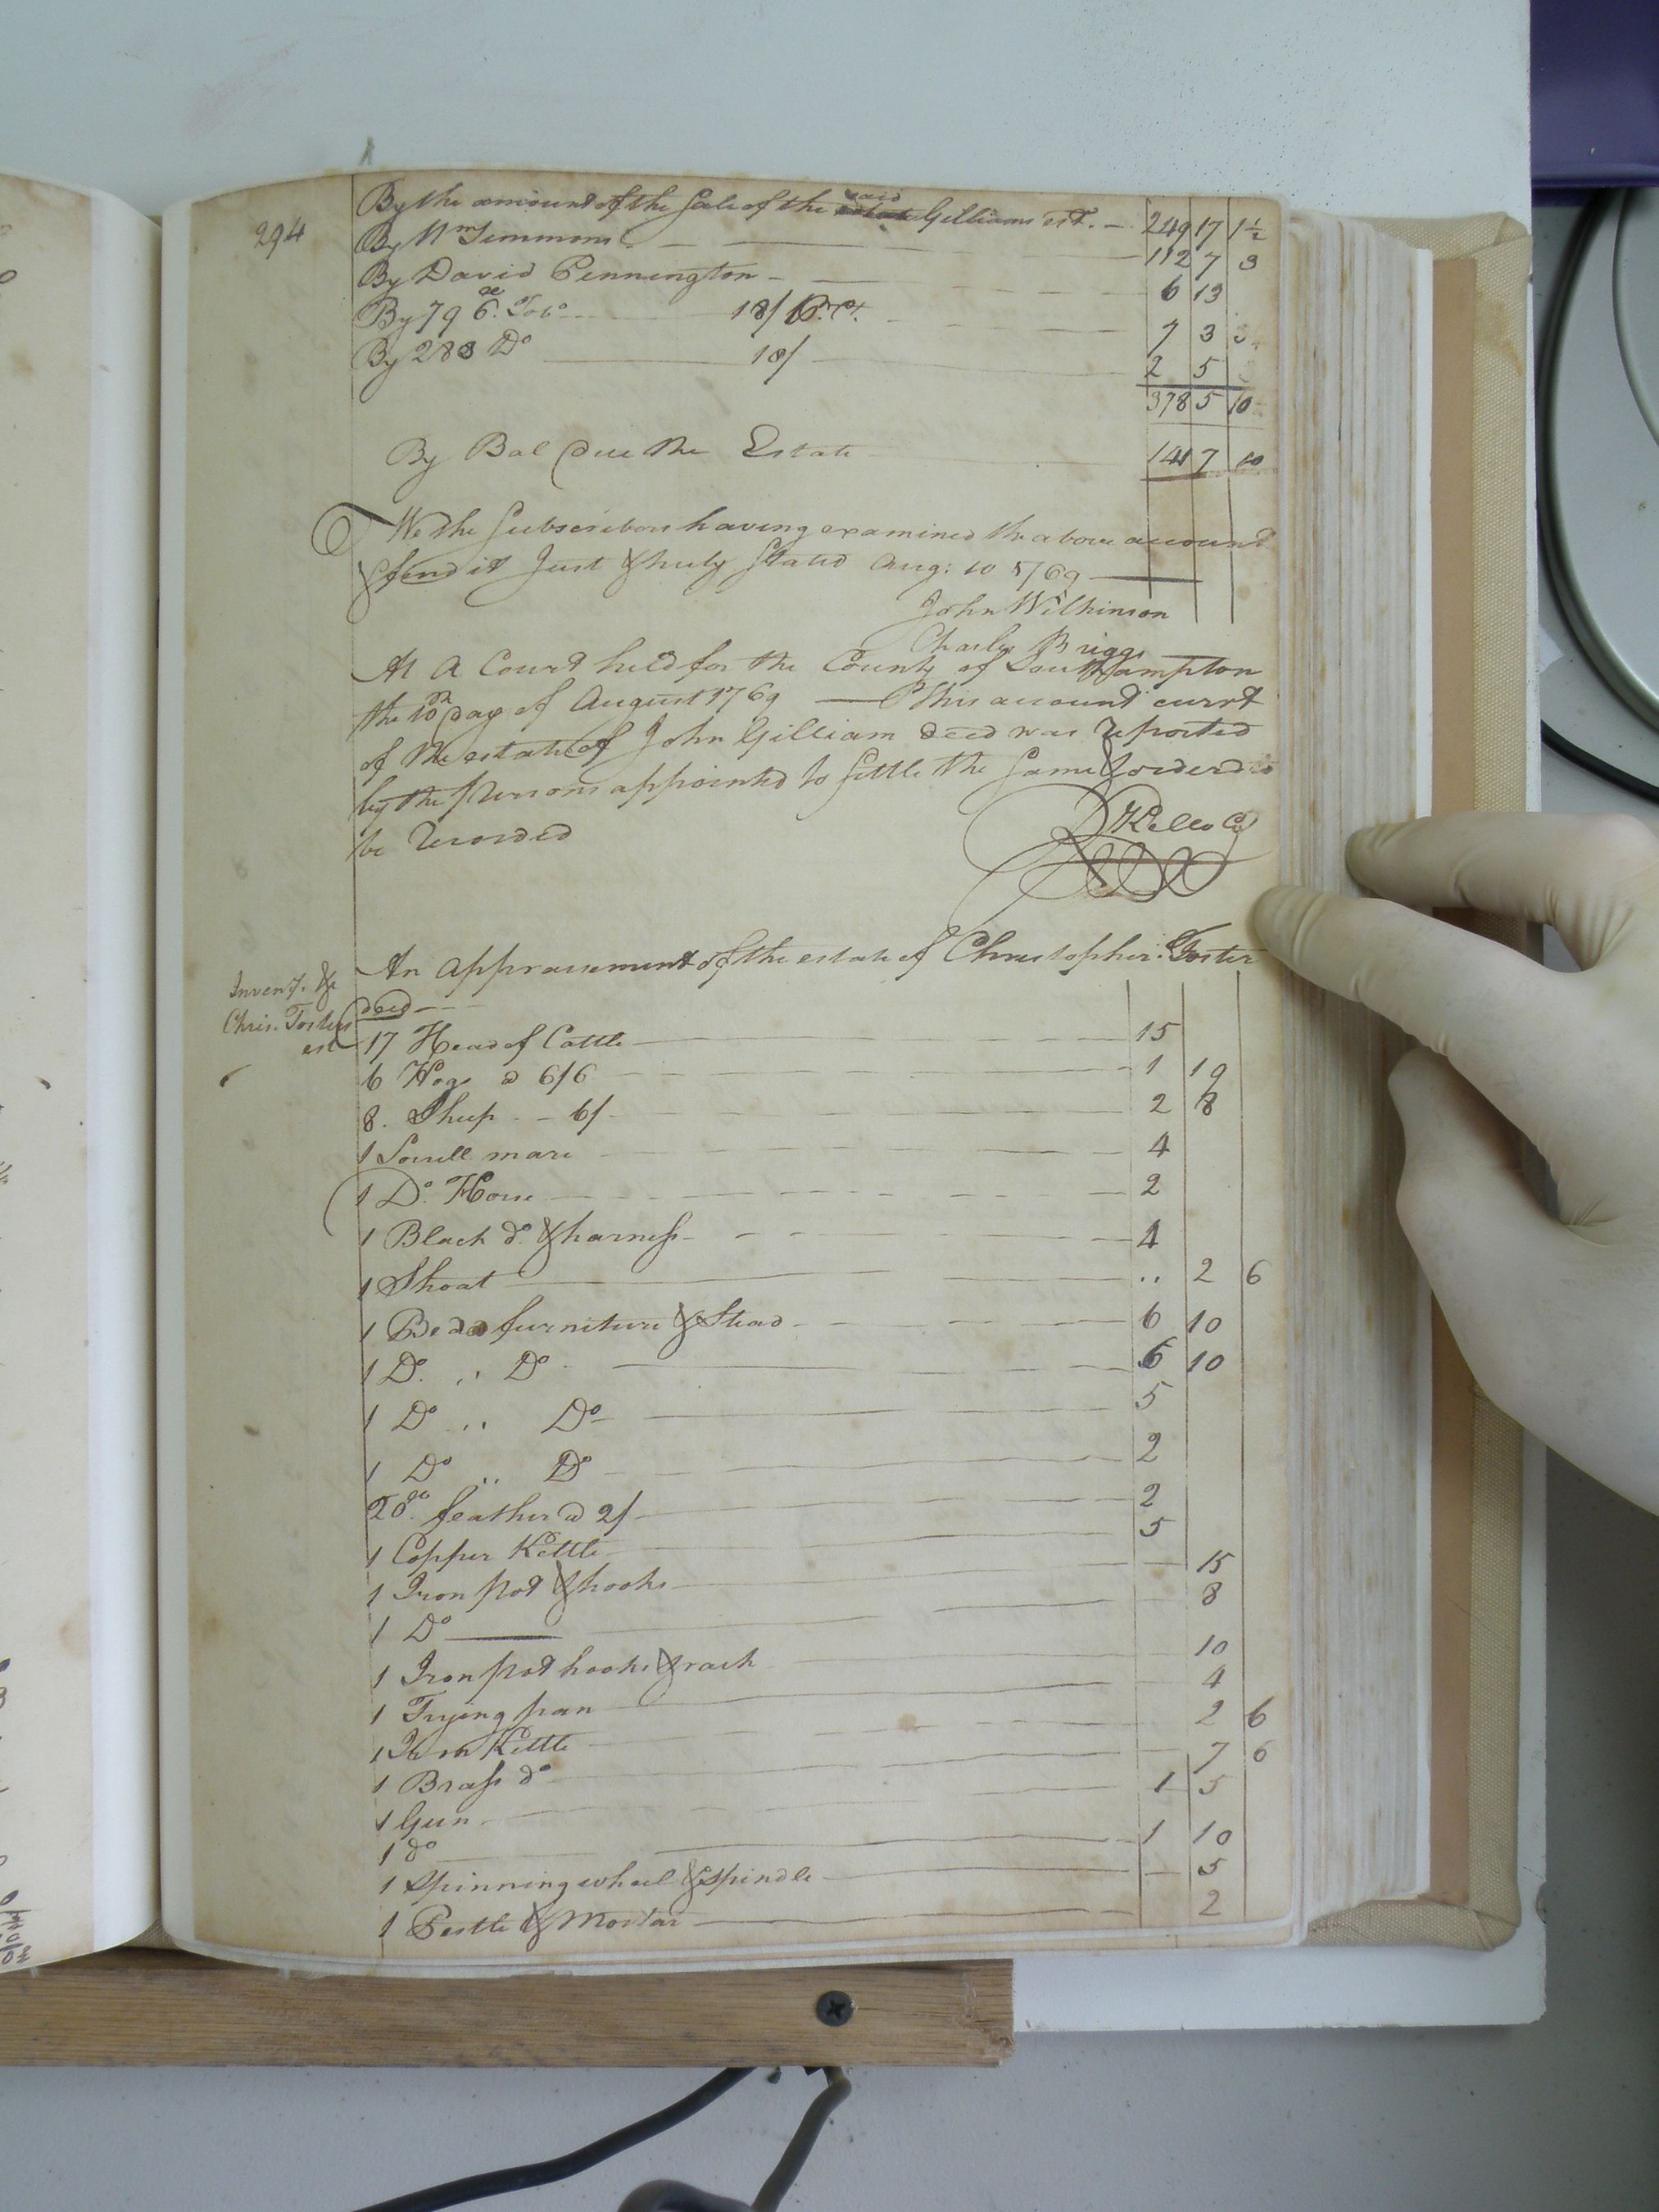 294
By the amount of the Sale of the said Gilliams est. — 249 17 1½
By Wm Simmons — 112 7 3
By David Pennington — 6 13
By 796 lb. Tobo — 18/ Pr. Ct. 7 3 3
By 288 Do — 18/ — 2 5
378 5 10
By Bal due the Estate 141 7 10
We the Subscribers having examined the above account
& find it Just & truly Stated Aug: 10 1769 —
John Wilkinson
Charles Briggs
At a Court held for the County of Southampton
the 10th day of August 1769 — This account currt
of the estate of John Gilliam decd was reported
by the persons appointed to Settle the Same & ordered to
be recorded
R Kello Ck
An Appraisement of the estate of Christopher Foster
Inventy. &c
Chris. Fosters
est
decd —
17 Head of Cattle — 15
6 Hogs @ 6/6 1 19
8. Sheep — 6/ 2 8
1 Sorrell mare 4
1 Do. Horse — 2
1 Black do. & harness — 4
1 Shoat — .. 2 6
1 Bed furniture & Stead — 6 10
1 Do. ,, Do 6 10
1 Do ,, Do — 5
1 Do ,, Do — 2
20 lb. feathers @ 2/ — 2
1 Copper Kettle 5
1 Iron pot & hooks — 15
1 Do — 8
1 Iron pot hooks & rack 10
1 Frying pan 4
1 Iron Kettle 2 6
1 Brass do 7 6
1 Gun 1 5
1 do — 1 10
1 Spinning wheel & Spindle — 5
1 Pestle & Mortar — 2